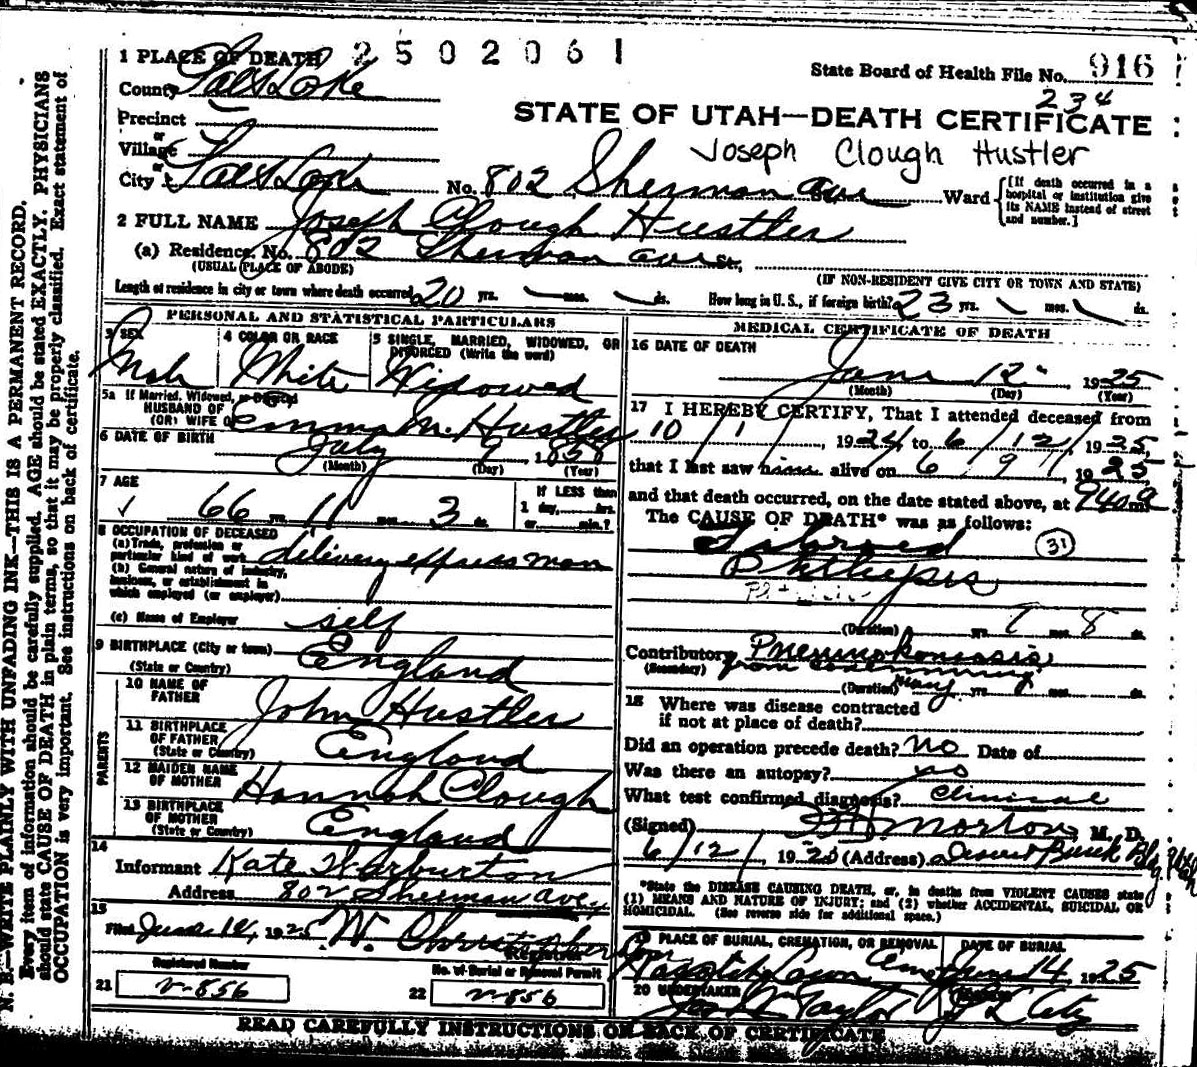 1 PLACE OF DEATH 2502061
State Board of Health File No. 916
234
County Salt Lake
STATE OF UTAH—DEATH CERTIFICATE
Precinct
or
Village
Joseph Clough Hustler
or
City Salt Lake No. 802 Sherman Ave St., Ward {[If death occurred in a hospital or institution give its NAME instead of street and number.]
2 FULL NAME Joseph Clough Hustler
(a) Residence. No. 802 Sherman ave St.,
(USUAL PLACE OF ABODE) (IF NON-RESIDENT GIVE CITY OR TOWN AND STATE)
Length of residence in city or town where death occurred 20 yrs. mos. ds. How long in U. S., if foreign birth? 23 yrs. mos. ds.
PERSONAL AND STATISTICAL PARTICULARS
3 SEX
Male
4 COLOR OR RACE
White
5 SINGLE, MARRIED, WIDOWED, OR DIVORCED (Write the word)
Widowed
5a If Married, Widowed, or Divorced
HUSBAND OF
(OR) WIFE OF Emma M. Hustler
6 DATE OF BIRTH July 9 1858
(Month) (Day) (Year)
7 AGE
66 yrs. 11 mos. 3 ds.
If LESS than
1 day, hrs.
or min.?
8 OCCUPATION OF DECEASED
(a) Trade, profession or
particular kind of work delivery express man
(b) General nature of industry,
business, or establishment in
which employed (or employer)
(c) Name of Employer self
9 BIRTHPLACE (City or town)
(State or Country) England
PARENTS
10 NAME OF
FATHER John Hustler
11 BIRTHPLACE
OF FATHER
(State or Country) England
12 MAIDEN NAME
OF MOTHER Hannah Clough
13 BIRTHPLACE
OF MOTHER
(State or Country) England
14
Informant Kate Warburton
Address 802 Sherman ave,
15
Filed June 14, 1925 W. Christopherson
Registrar
Registered Number
21 v-856
No. of Burial or Removal Permit
22 v-856
MEDICAL CERTIFICATE OF DEATH
16 DATE OF DEATH
June 12 1925
(Month) (Day) (Year)
17 I HEREBY CERTIFY, That I attended deceased from
10/1/, 1924, to 6/12/, 1925,
that I last saw him alive on 6/9/, 1925
and that death occurred, on the date stated above, at 940 a m.
The CAUSE OF DEATH* was as follows:
Fibroid 31
Phthysis
(Duration) yrs. mos. 8 ds.
Contributory Pneumokoniosis
(Secondary) from coal mining
(Duration) many yrs. mos. ds.
18 Where was disease contracted
if not at place of death?
Did an operation precede death? no Date of
Was there an autopsy? no
What test confirmed diagnosis? Clinical
(Signed) Morton M. D.
6/12/, 1925 (Address) Deseret Bank Bldg
*State the DISEASE CAUSING DEATH, or, in deaths from VIOLENT CAUSES state
(1) MEANS AND NATURE OF INJURY; and (2) whether ACCIDENTAL, SUICIDAL OR
HOMICIDAL. (See reverse side for additional space.)
19 PLACE OF BURIAL, CREMATION, OR REMOVAL
Wasatch Lawn Cem
DATE OF BURIAL
June 14 1925
20 UNDERTAKER
Taylor
S L City
READ CAREFULLY INSTRUCTIONS ON BACK OF CERTIFICATE
N. B.—WRITE PLAINLY WITH UNFADING INK—THIS IS A PERMANENT RECORD.
Every item of information should be carefully supplied. AGE should be stated EXACTLY. PHYSICIANS
should state CAUSE OF DEATH in plain terms, so that it may be properly classified. Exact statement of
OCCUPATION is very important. See instructions on back of certificate.